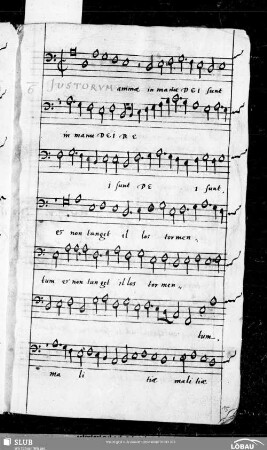 6
JUSTORUM animæ in manu DEI sunt
in manu DEI DE
i sunt DE i sunt.
et non tanget il los tormen
tum et non tanget illos tor men
tum.
ma li tiæ malitiæ
SLUB
LÖBAU